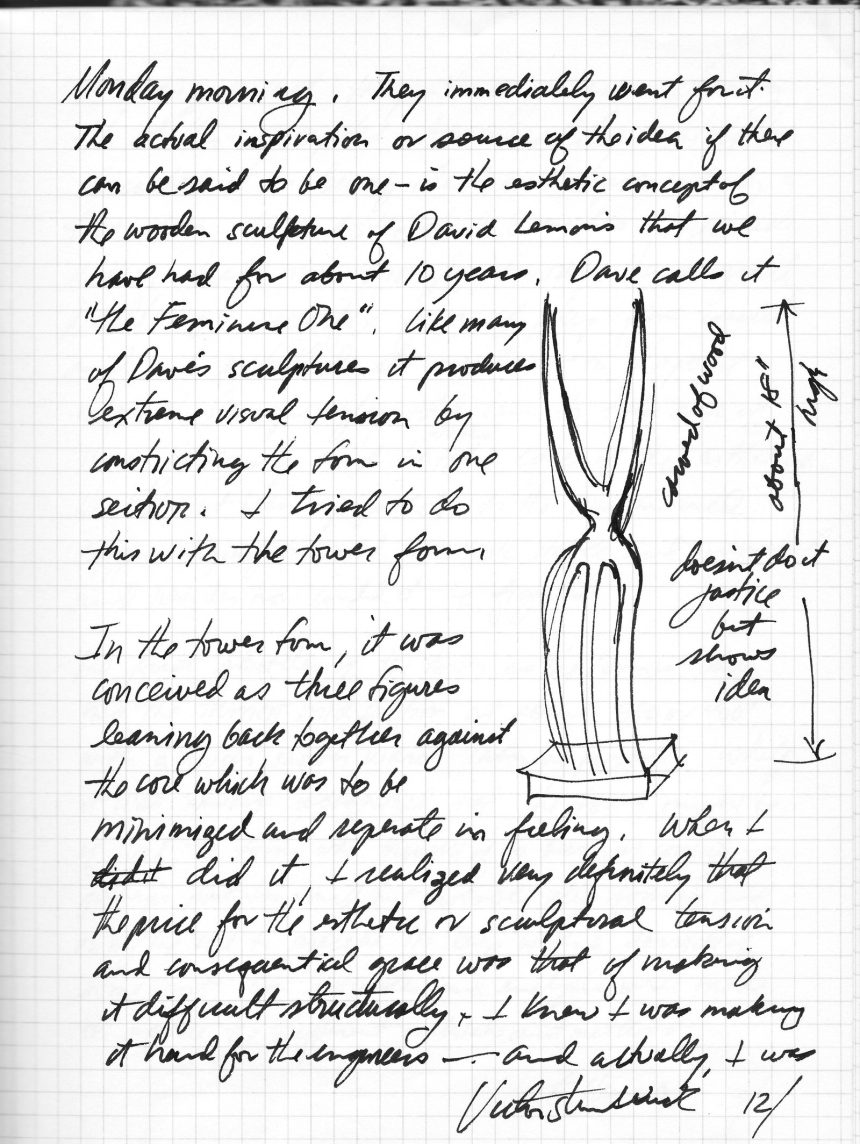 Monday morning. They immediately went for it.
The actual inspiration or source of the idea if there
can be said to be one – is the esthetic concept of
the wooden sculpture of David Lemon's that we
have had for about 10 years. Dave calls it
"the Feminine One". Like many
of Dave's sculptures it produces
extreme visual tension by
constricting the form in one
section. I tried to do
this with the tower form.
carved of wood
about 18"
high
doesn't do it
justice
but
shows
idea
In the tower form, it was
conceived as three figures
leaning back together against
the core which was to be
minimized and seperate in feeling. When I
did it, I realized very definitely that
the price for the esthetic or sculptural tension
and consequential grace was that of making
it difficult structurally. I knew I was making
it hard for the engineers — and actually, I was
12/